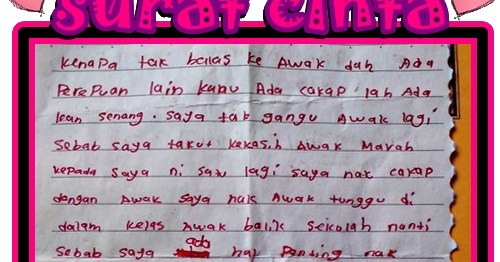 surat cinta
Kenapa tak balas ke Awak dah Ada
Perempuan lain kalau Ada cakap lah Ada
kan senang. saya tak gangu Awak lagi
Sebab saya takut kekasih Awak Marah
kepada saya ni satu lagi saya nak cakap
dengan Awak saya nak Awak tunggu di
dalam kelas Awak balik sekolah nanti
Sebab saya ada hal Penting nak